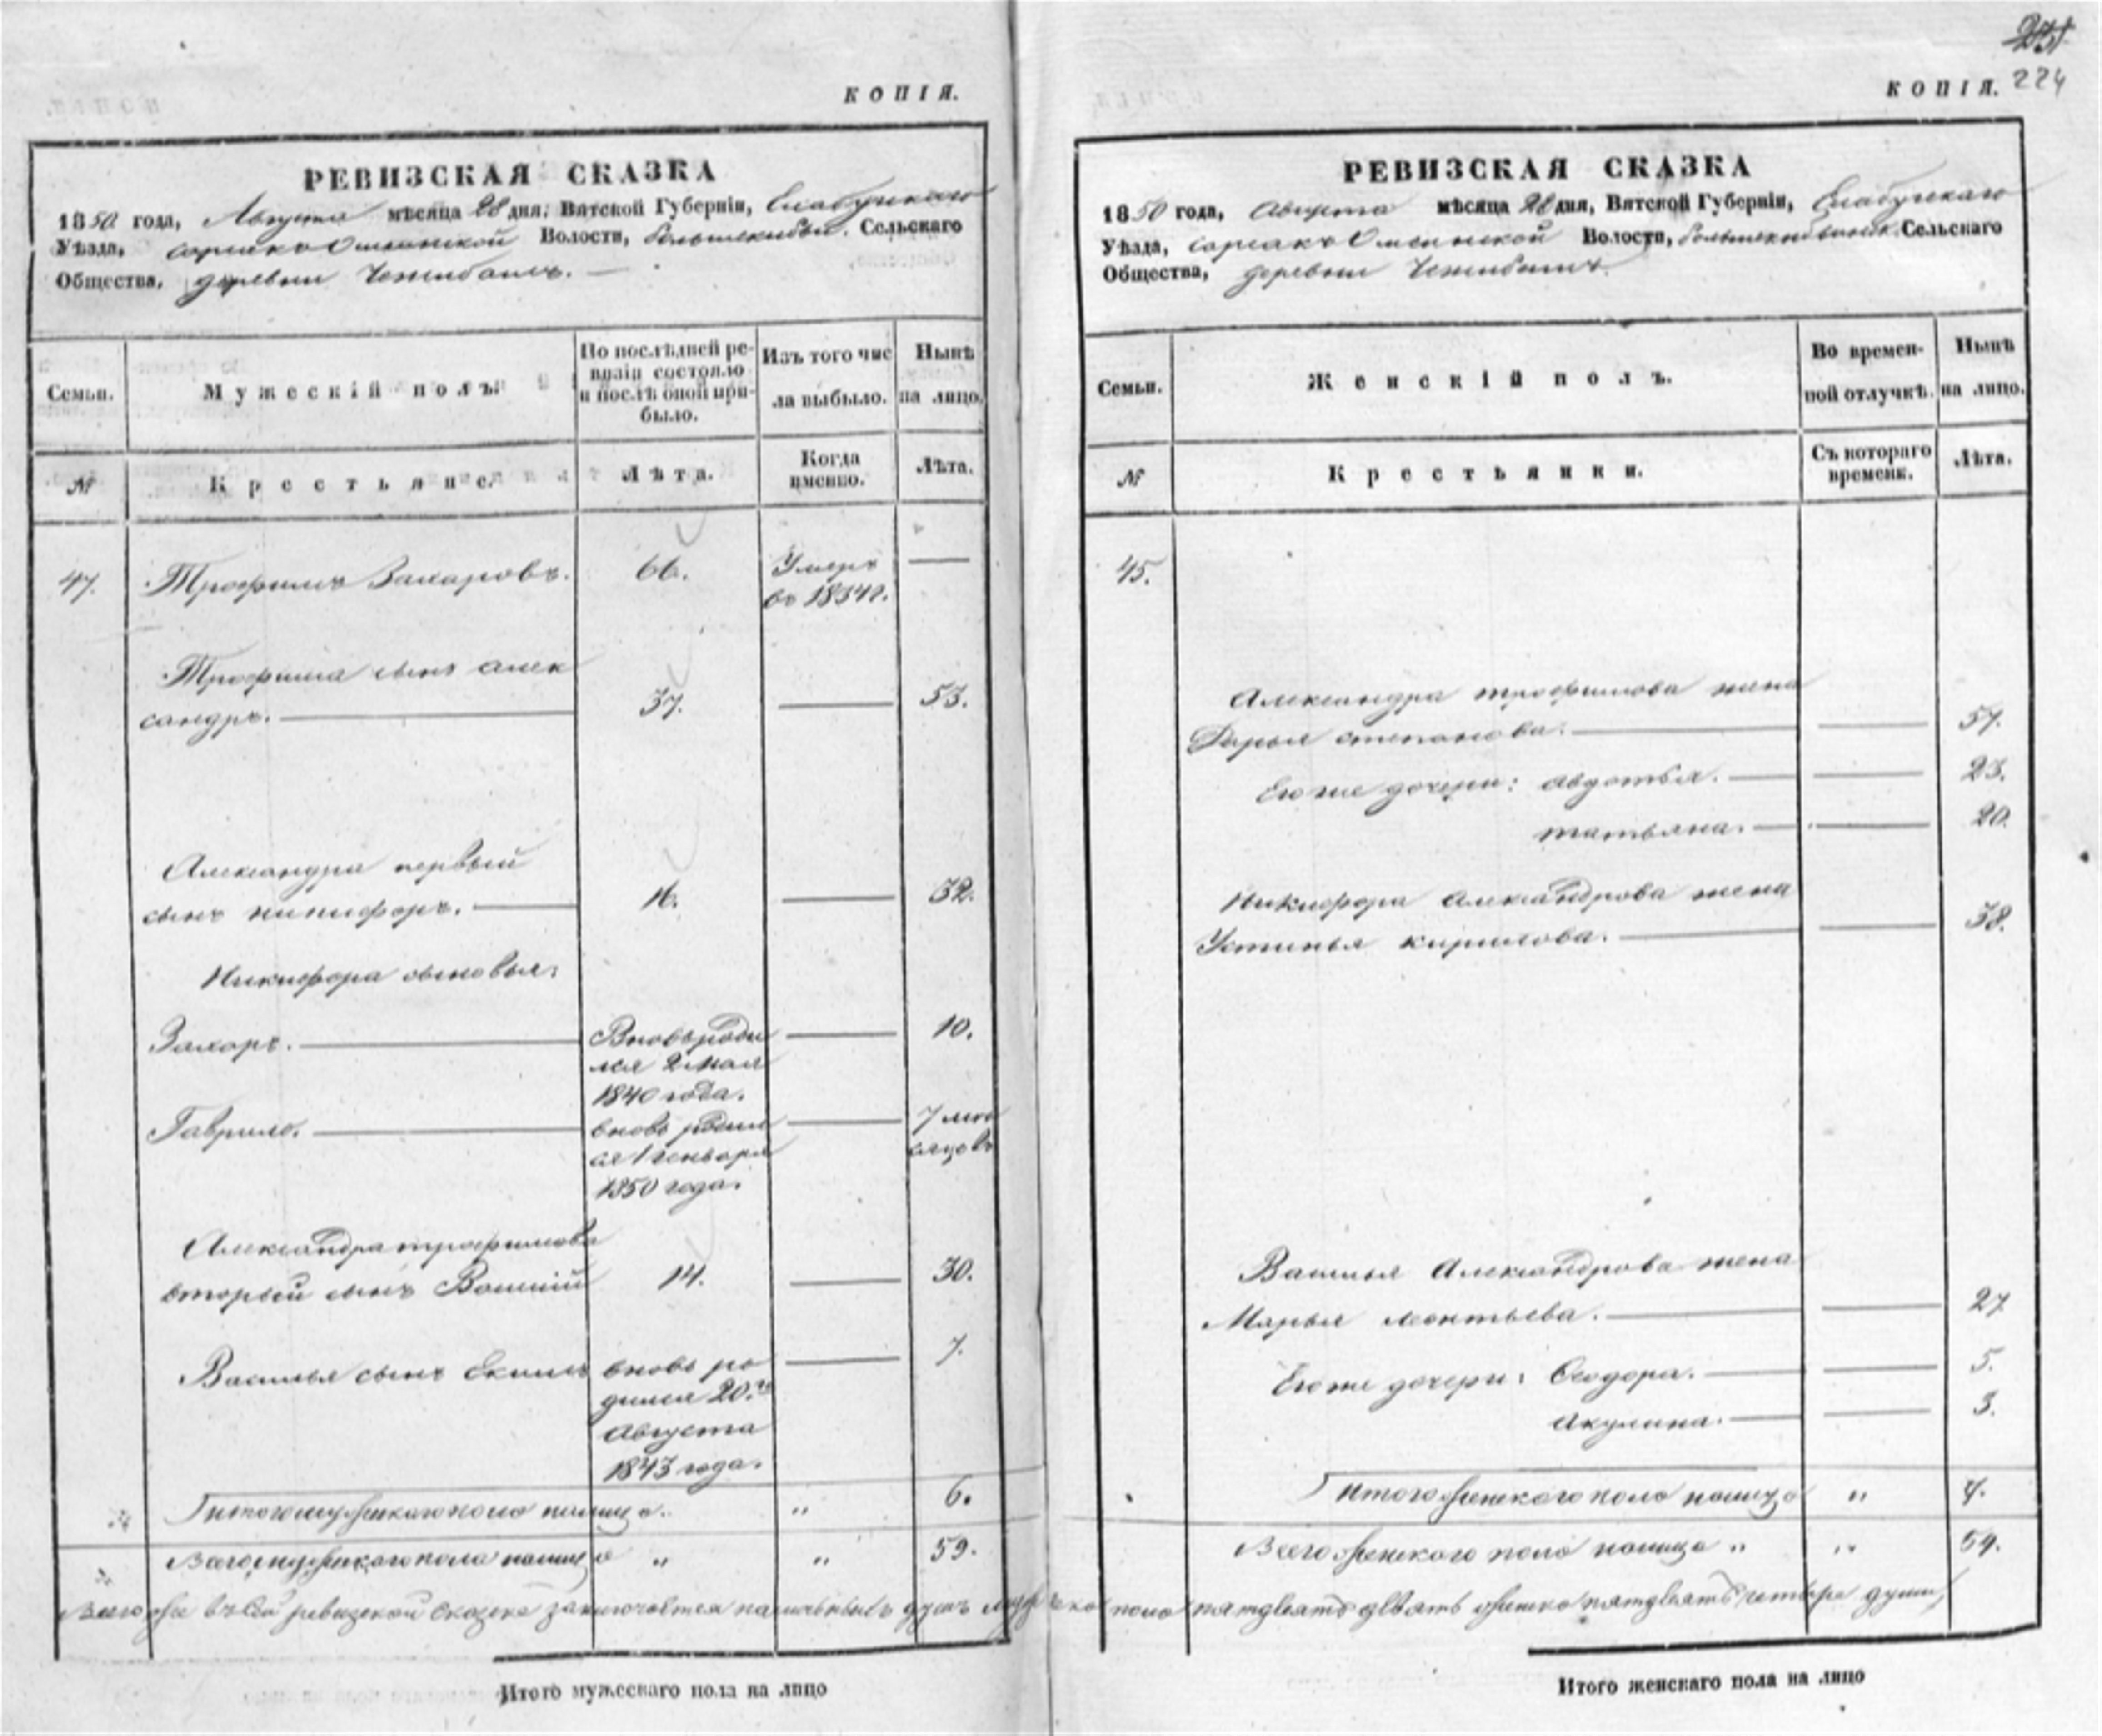 КОПІЯ.
РЕВИЗСКАЯ СКАЗКА
1850 года, Августа мѣсяца 28 дня, Вятской Губерніи, Елабужскаго
Уѣзда, Волости, Сельскаго
Общества, деревни
Семьи.
Мужескій полъ.
По послѣдней ре-
визіи состояло
и послѣ оной при-
было.
Изъ того чис
ла выбыло.
Нынѣ
на лицо.
№
Крестьяне.
Лѣта.
Когда
именно.
Лѣта.
47. Трофимъ Захаровъ. 66. Умеръ —
въ 1834 г.
Трофима сынъ алек
сандръ. — 37. — 53.
Александра первый
сынъ никифоръ. — 16. — 32.
Никифора сыновья:
Захаръ. — Вновь роди — 10.
лся 2 мая
1840 года.
Гаврило. — вновь родил — 7 мѣ
ся 1 генваря сяцовъ
1850 года.
Александра трофимова
вторый сынъ Василій 14. — 30.
Василья сынъ Екимъ вновь ро — 7.
дился 20.го
Августа
1843 года.
Итого мужескаго пола налицо. " 6.
Всего мужескаго пола налицо " " 59.
Всего же въ сей ревизской сказке заключается наличныхъ душъ мужеска пола пятдесятъ девять женска пятдесятъ четыре души
Итого мужескаго пола на лицо
231
224
КОПІЯ.
РЕВИЗСКАЯ СКАЗКА
1850 года, Августа мѣсяца 28 дня, Вятской Губерніи, Елабужскаго
Уѣзда, Волости, Сельскаго
Общества, деревни
Семьи.
Женскій полъ.
Во времен-
ной отлучкѣ.
Нынѣ
на лицо.
№
Крестьянки.
Съ котораго
времени.
Лѣта.
45.
Александра трофимова жена
Дарья степанова. — — 57.
Его же дочери: авдотья. — — 23.
татьяна. — — 20.
Никифора Александрова жена
Устинья кирилова. — — 38.
Василья Александрова жена
Марья леонтьева. — — 27
Его же дочери: Феодора. — — 5.
Акулина. — — 3.
Итого женскаго пола налицо " 7.
Всего женскаго пола налицо " " 54.
Итого женскаго пола на лицо